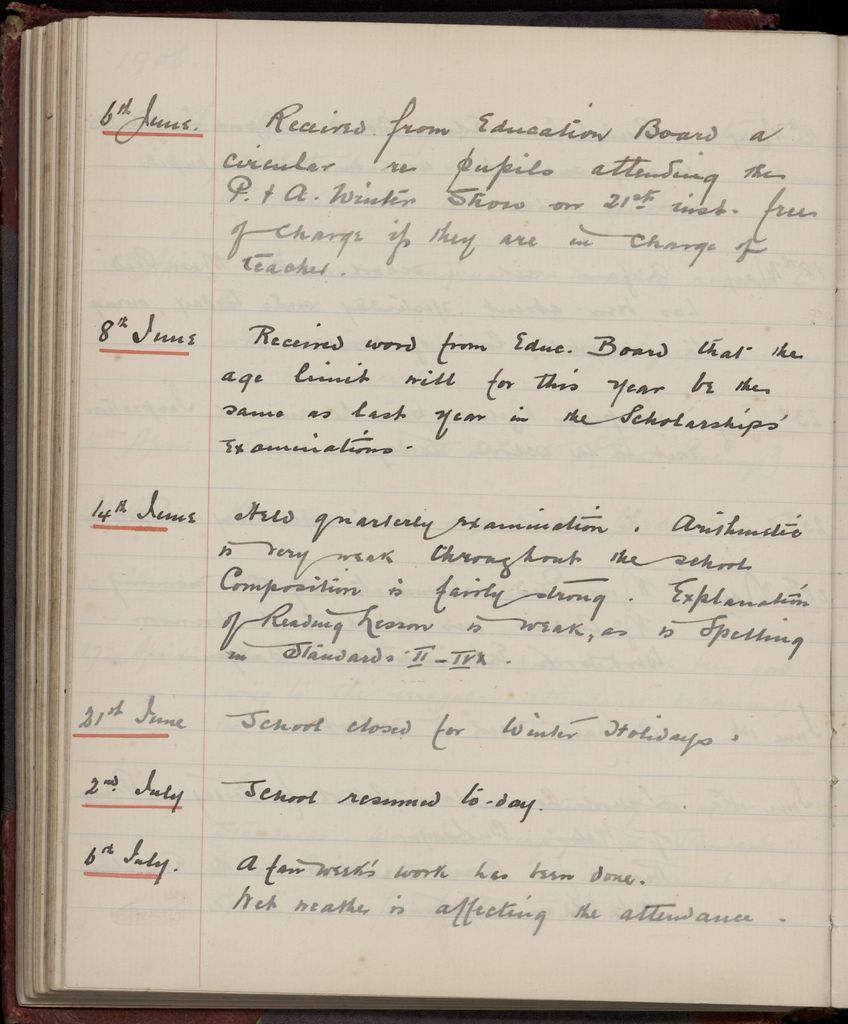 6th June. Received from Education Board a
circular re pupils attending the
P. & A. Winter Show on 21st inst. free
of charge if they are in charge of
teacher.
8th June Received word from Educ. Board that the
age limit will for this year be the
same as last year in the Scholarships'
Examinations.
14th June Held quarterly examination. Arithmetic
is very weak throughout the school
Composition is fairly strong. Explanation
of Reading Lesson is weak, as is Spelling
in Standards II - IV.
21st June School closed for Winter Holidays.
2nd July School resumed to-day.
6th July. A fair week's work has been done.
Wet weather is affecting the attendance.